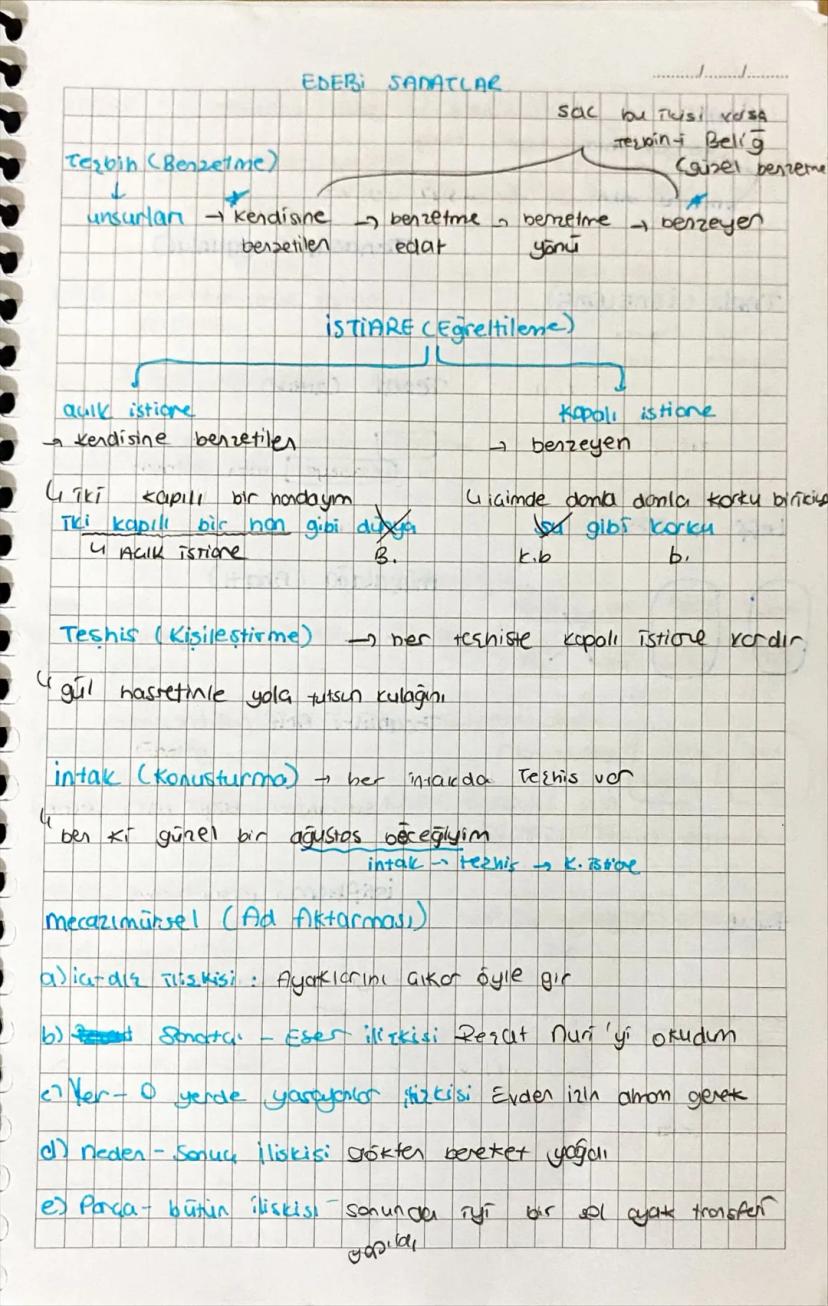 ......../......../........
EDEBİ SANATLAR
sac bu ikisi varsa
Teşbih-i Beliğ
(güzel benzeme
Teşbih (Benzetme)
↓
unsurları → kendisine benzetilen → benzetme edat → benzetme yönü → benzeyen
İSTİARE (Eğretileme)
açık istiare
→ kendisine benzetilen
↳ iki kapılı bir handayım
iki kapılı bir han gibi dünya
↳ Açık istiare B.
Kapalı istiare
→ benzeyen
↳ içimde damla damla korku birikiyo
su gibi korku
k.b b.
Teşhis (Kişileştirme) → her teşhiste kapalı istiare vardır
↳ gül hasretinle yola tutsun kulağını
intak (Konuşturma) → her intakda teşhis var
↳ ben ki güzel bir ağustos böceğiyim
intak → teşhis → k. istiare
mecazımürsel (Ad Aktarması)
a) iç-dış ilişkisi : Ayaklarını çıkar öyle gir
b) Sanatçı - Eser ilişkisi Reşat Nuri'yi okudum
c) Yer - O yerde yaşayanlar ilişkisi Evden izin alman gerek
d) neden - Sonuç ilişkisi gökten bereket yağdı
e) Parça - bütün ilişkisi - sonunda iyi bir sol ayak transferi
yapıldı